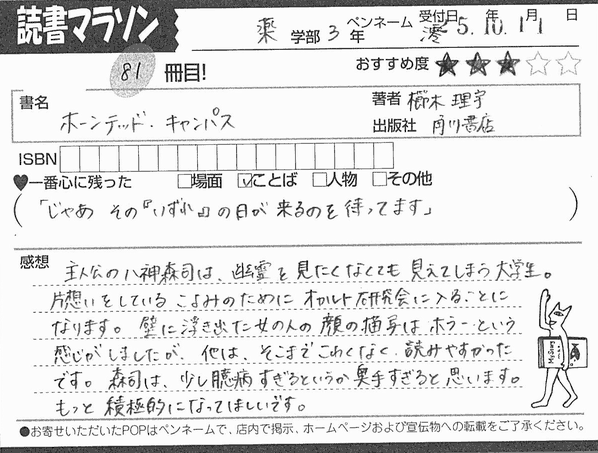 読書マラソン
薬 学部 3 年 ペンネーム 澪 受付日 5. 年 10. 月 11 日
81 冊目!
おすすめ度 ★★★☆☆
書名 ホーンテッド・キャンパス
著者 櫛木 理宇
出版社 角川書店
ISBN
♥一番心に残った □場面 ☑ことば □人物 □その他
(「じゃあ その『いずれ』の日が 来るのを 待ってます」)
感想
主人公の八神森司は、幽霊を見たくなくても見えてしまう大学生。
片想いをしている こよみのために オカルト研究会に入ることに
なります。壁に浮き出た女の人の顔の描写はホラーという
感じがしましたが、他は、そこまでこわくなく、読みやすかった
です。森司は、少し臆病すぎるというか奥手すぎると思います。
もっと積極的になってほしいです。
●お寄せいただいたPOPはペンネームで、店内で掲示、ホームページおよび宣伝物への転載をご了承ください。